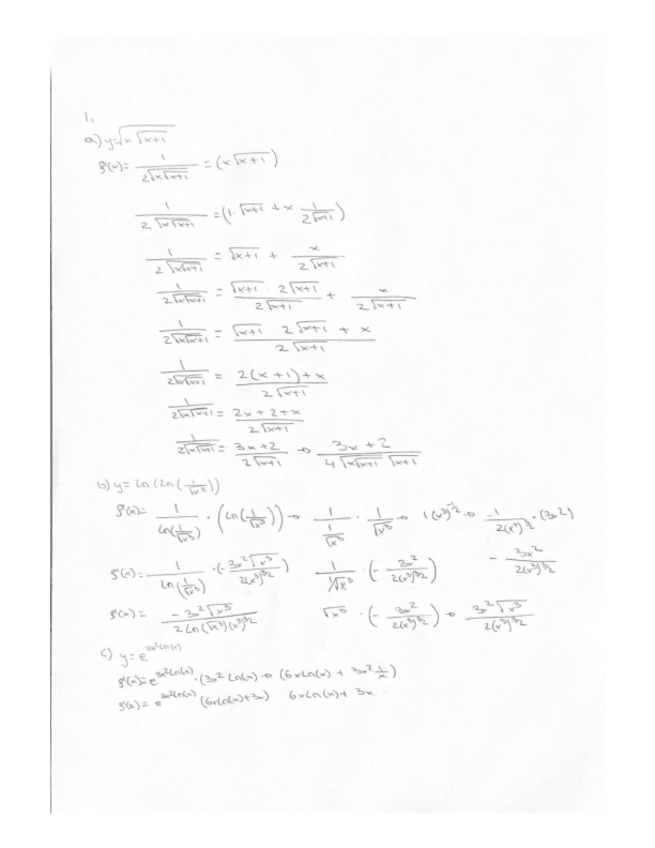 1.
a) y=√(x√(x+1))
f'(x)= 1/(2√(x√(x+1))) = (x√(x+1))
1/(2√(x√(x+1))) = (1·√(x+1) + x 1/(2√(x+1)))
1/(2√(x√(x+1))) = √(x+1) + x/(2√(x+1))
1/(2√(x√(x+1))) = (√(x+1) · 2√(x+1))/(2√(x+1)) + x/(2√(x+1))
1/(2√(x√(x+1))) = (√(x+1) · 2√(x+1) + x)/(2√(x+1))
1/(2√(x√(x+1))) = (2(x+1)+x)/(2√(x+1))
1/(2√(x√(x+1))) = (2x+2+x)/(2√(x+1))
1/(2√(x√(x+1))) = (3x+2)/(2√(x+1)) → (3x+2)/(4√(x√(x+1)) √(x+1))
b) y = Ln(Ln(1/√x³))
f'(x)= 1/(Ln(1/√x³)) · (Ln(1/√x³)) → 1/(1/√x³) · 1/√x³ → 1(x³)^(-1/2) → -1/(2(x³)^(3/2)) · (3x²)
f'(x)= 1/(Ln(1/√x³)) · (- 3x²√x³/(2(x³)^(3/2))) 1/(1/√x³) · (- 3x²/(2(x³)^(3/2))) - 3x²/(2(x³)^(3/2))
f'(x)= -3x²√x³/(2Ln(√x³)(x³)^(3/2)) √x³ · (- 3x²/(2(x³)^(3/2))) → 3x²√x³/(2(x³)^(3/2))
c) y = e^(3x²Ln(x))
f'(x)= e^(3x²Ln(x)) · (3x² Ln(x) → (6xLn(x) + 3x² 1/x)
f'(x) = e^(3x²Ln(x)) (6xLn(x)+3x) 6xLn(x)+ 3x